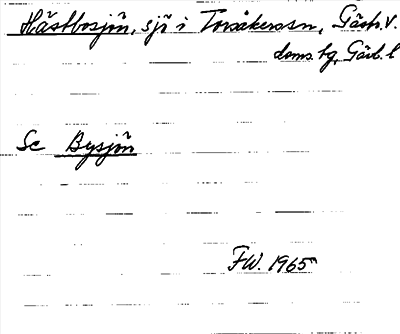 Hästbosjön, sjö i Torsåkerssn, Gästr. V.
doms. tg, Gävl. l
Se Bysjön
FW. 1965